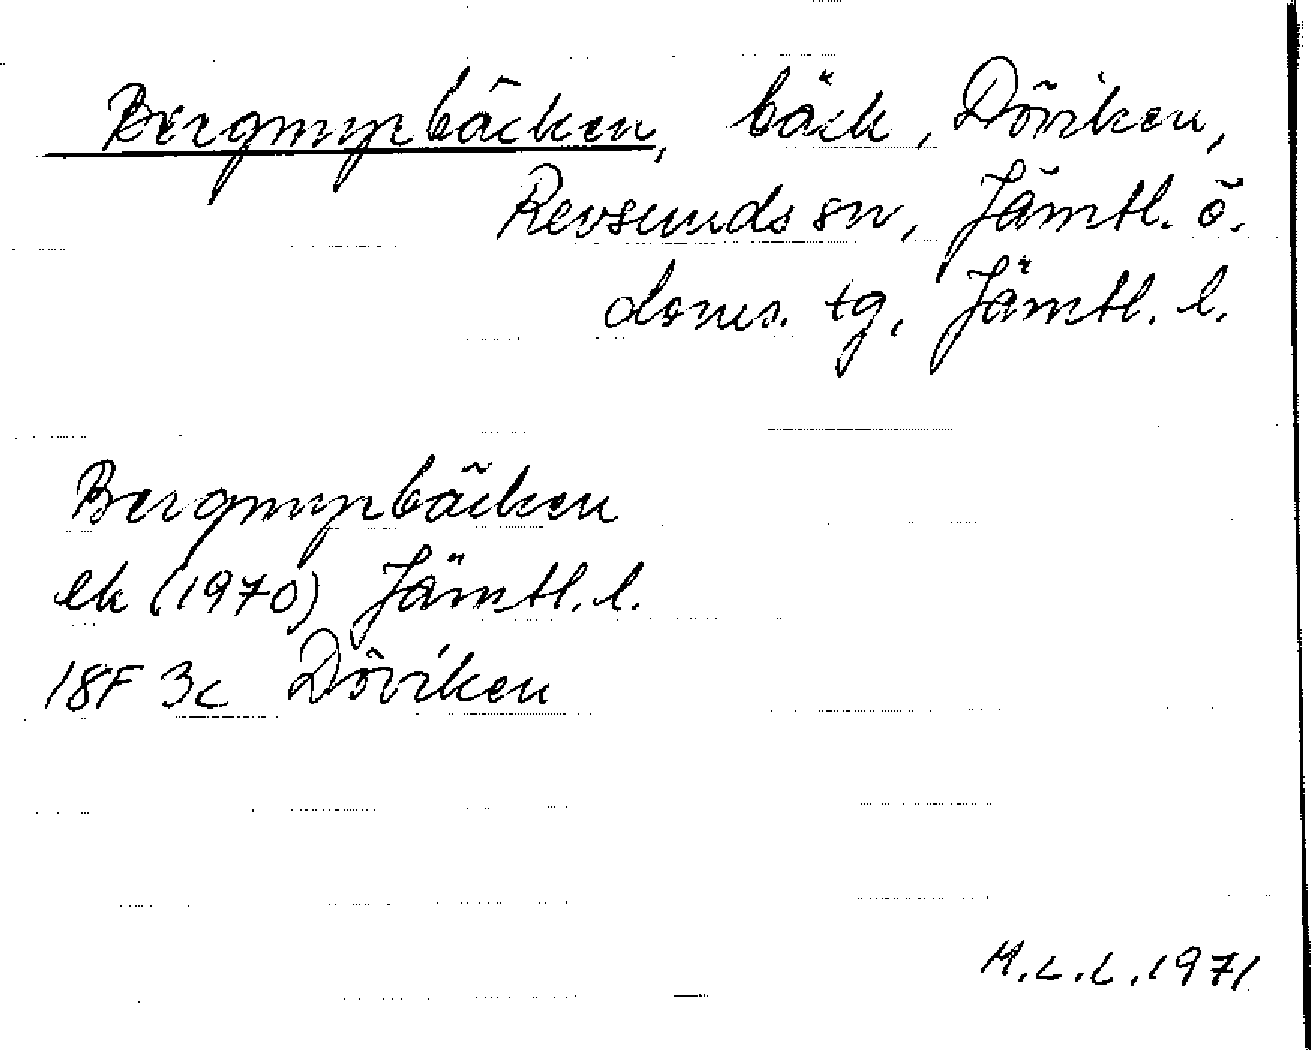 Bergmyrbäcken, bäck, Döviken,
Revsunds sn, Jämtl. ö.
doms. tg, Jämtl. l.
Bergmyrbäcken
ek (1970) Jämtl. l.
18F 3c Döviken
M.L.L. 1971